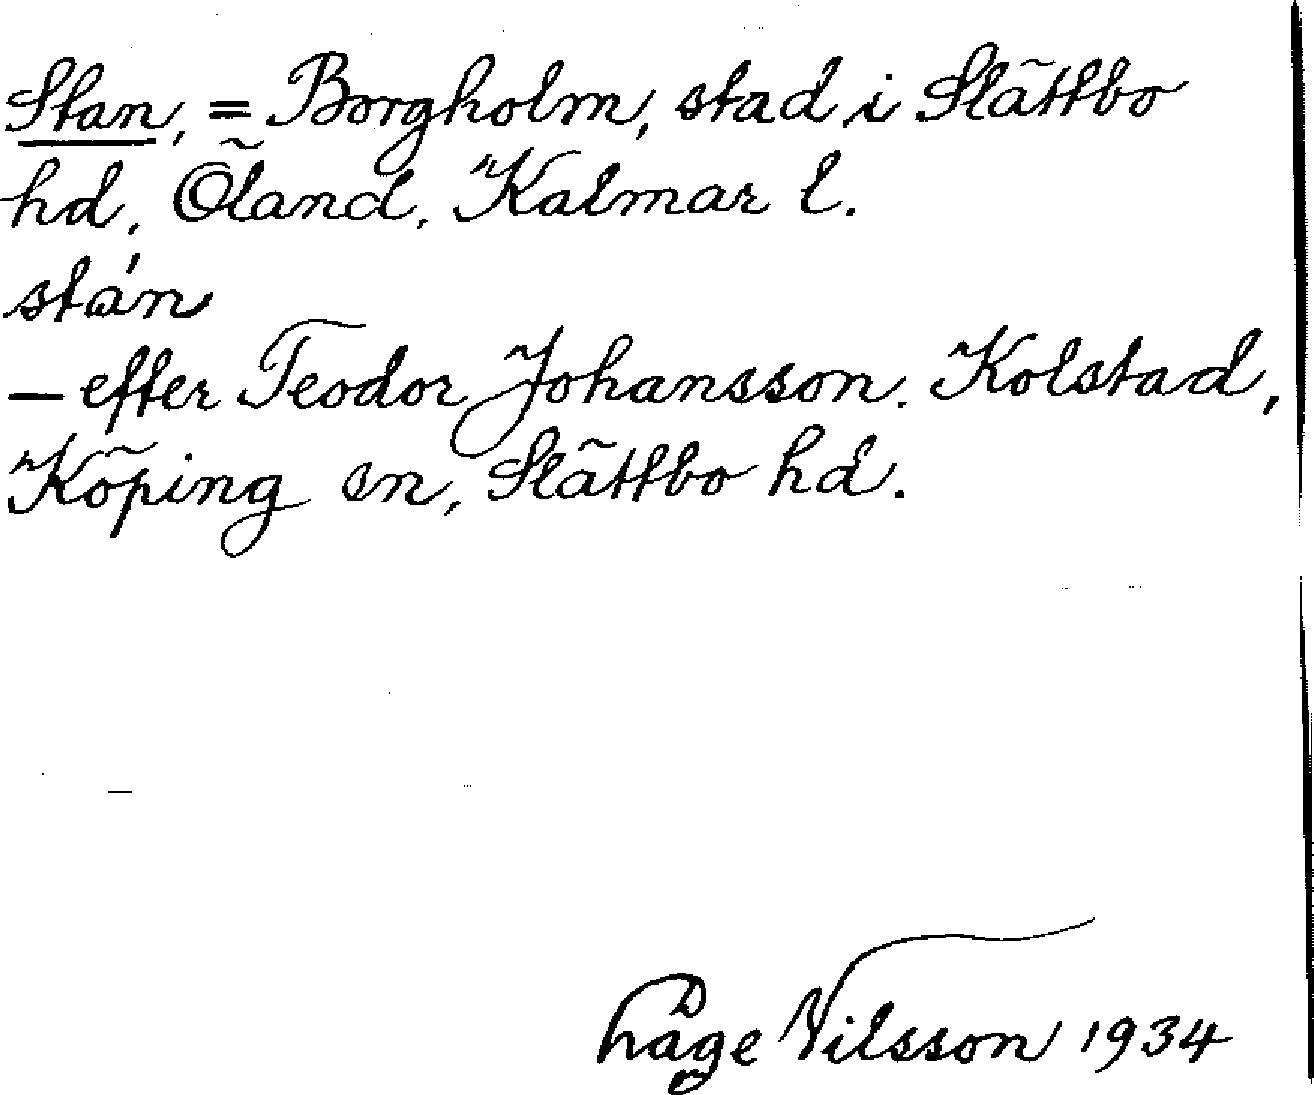 Stan, = Borgholm, stad i Slättbo
hd, Öland, Kalmar l.
stá̀n
— efter Teodor Johansson. Kolstad,
Köping sn, Slättbo hd.
Håge Nilsson 1934